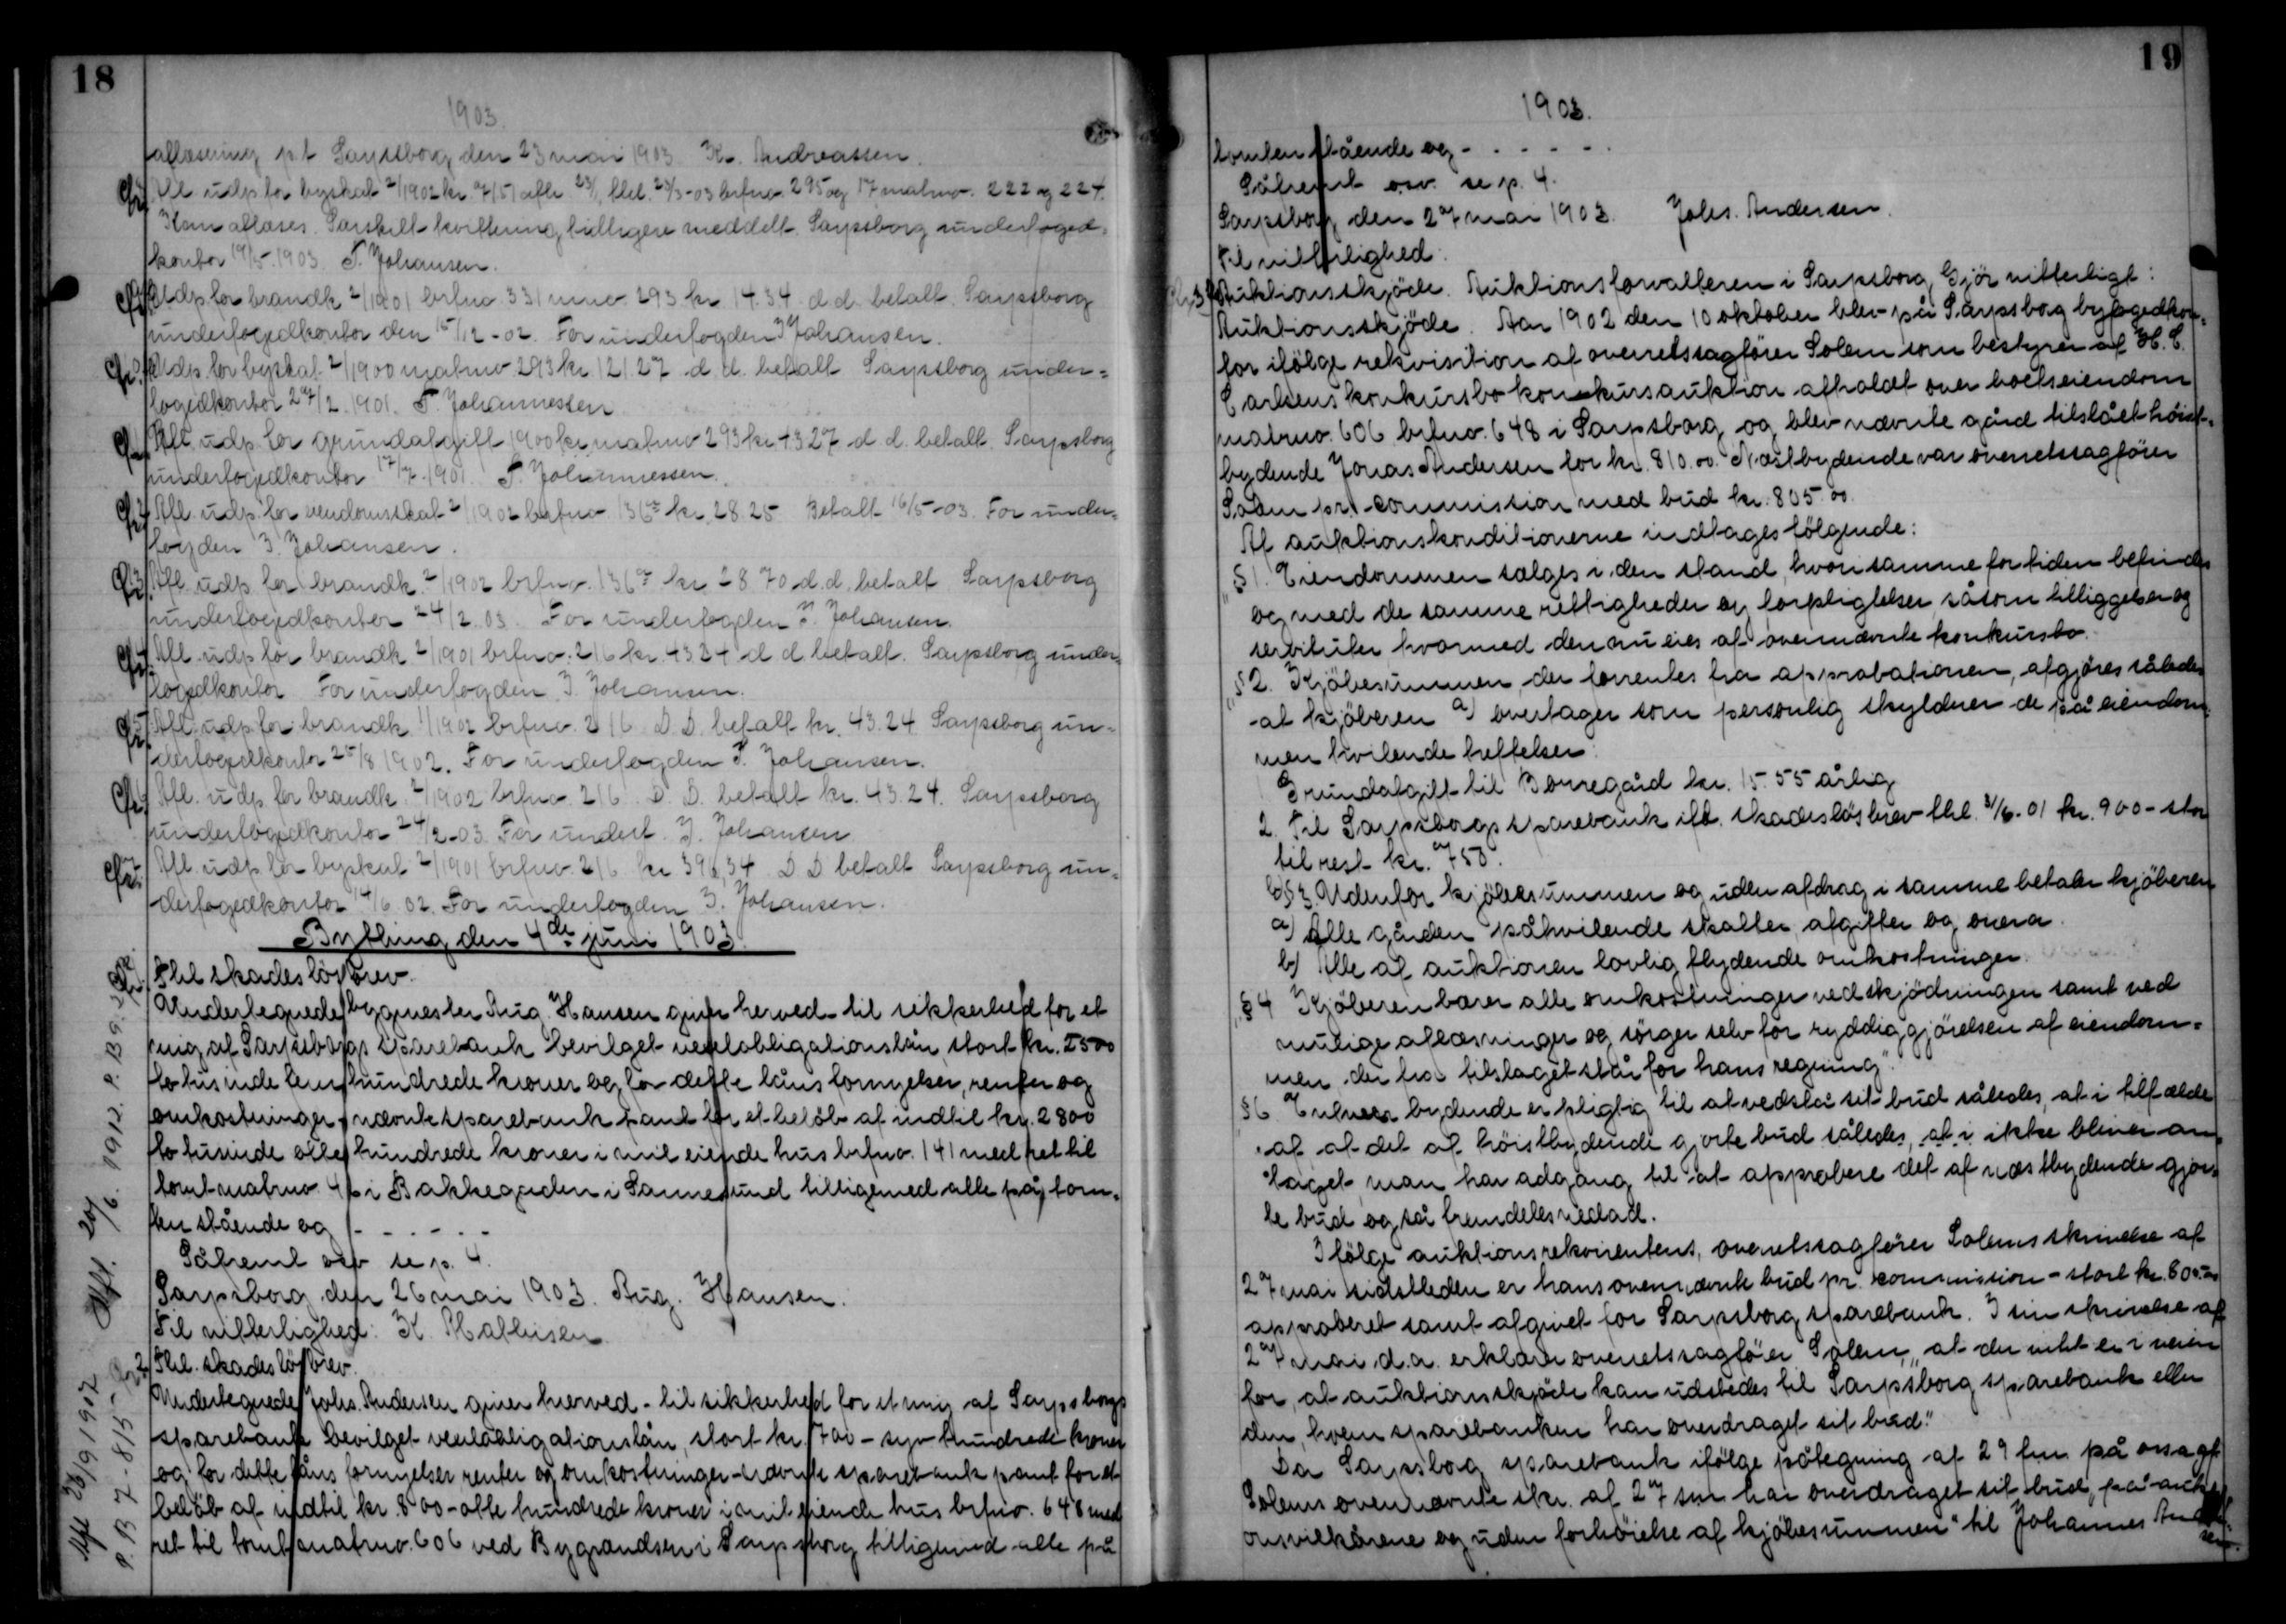 18
1903.
aflæsning p.t. Sarpsborg den 23 mai 1903 K. Andreassen.
Afl. udp. for byskat 2/1902 kr. 295 og 17 matrno. 222 og 224.
Kan aflæses. Særskilt kvittering tidligere meddelt. Sarpsborg underfoged=
kontor 19/5.1903. T. Johansen.
Udp. for brandk. 2/1901 brfno 331 mno. 293 kr. 14.34 d.d. betalt. Sarpsborg
underfogedkontor den 15/12-02. For underfogden T Johansen.
Udp. for byskat 2/1900 matrno 293 kr. 121.27 d.d. betalt Sarpsborg under=
fogedkontor 27/2.1901. T. Johannessen
Afl. udp. for grundafgift 1900 kr. matrno 293 kr. 43.27 d.d. betalt. Sarpsborg
underfogedkontor 17/7.1901. T. Johannessen.
Afl. udp. for eiendomsskat 2/1902 brfno 136 kr. 28.25 Betalt 16/5-03. For under=
fogden T. Johansen.
Afl. udp. for brandk. 2/1902 brfno. 136 kr. 28.70 d.d. betalt Sarpsborg
underfogedkontor 24/2.03. For underfogden T. Johansen.
Afl. udp. for brandk. 2/1901 brfno. 216 kr. 43.24 d.d. betalt. Sarpsborg under=
fogedkontor For underfogden T. Johansen.
Afl. udp. for brandk. 1/1902 brfno. 216 D.D. betalt kr. 43.24 Sarpsborg un=
derfogedkontor 25/8 1902. For underfogden T. Johansen.
Afl. udp. for brandk. 2/1902 brfno. 216. D.D. betalt kr. 43.24. Sarpsborg
underfogedkontor 24/2-03. For underf. T. Johansen
Afl. udp. for byskat 2/1901 brfno. 216 kr. 396,34 D.D. betalt Sarpsborg un=
derfogedkontor 14/6.02. For underfogden T. Johansen.
Bything den 4de juni 1903.
Thl. skadesløsbrev.
Undertegnede bygmester Aug. Hansen giver herved til sikkerhed for et
mig af Sarpsborgs sparebank bevilget vexelobligationslån stort kr. 2500
to tusinde fem hundrede kroner og for dette låns fornyelser, renter og
omkostninger - nævnte sparebank pant for et beløb af indtil kr. 2800
to tusinde otte hundrede kroner i mit eiende hus brfno. 141 med ret til
tomt matrno 4 i Bakkegaden i Sannesund tilligemed alle på tom=
ten stående og - - - - -
Såfremt osv se p. 4.
Sarpsborg den 26 mai 1903. Aug. Hansen.
Til vitterlighed: K. Mathisen
Thl. skadesløsbrev.
Undertegnede Johs. Andersen giver herved - til sikkerhed for et mig af Sarpsborgs
sparebank bevilget vexelobligationslån, stort kr. 700 - syv hundrede kroner
og for dette låns fornyelser renter og omkostninger - nævnte sparebank pant for et
beløb af indtil kr. 800 - otte hundrede kroner i mit eiende hus brfno. 648 med
ret til tomt matrno. 606 ved Bygrændsen i Sarpsborg tilligemed alle på
Afl. 20/6. 1912. P. B 9.
Afl 26/9 1907
P. B 7 - 815
19
1903.
tomten stående og - - - - - -
Såfremt osv. se p. 4.
Sarpsborg den 27 mai 1903. Johs. Andersen.
Til vitterlighed:
Auktionsskjøde. Auktionsforvalteren i Sarpsborg Gjør vitterligt:
Auktionsskjøde. Aar 1902 den 10 oktober blev på Sarpsborg byfogedkon=
tor ifølge rekvisition af overretssagfører Solem som bestyrer af H. C.
Carlsens konkursbo konkursauktion afholdt over boets eiendom
matrno. 606 brfno. 648 i Sarpsborg og blev nævnte gård tilslået høist=
bydende Jonas Andersen for kr. 810.00. Næstbydende var overretssagfører
Solem pr. commission med bud kr. 805.00
Af auktionskonditionerne indtages følgende:
"§ 1. Eiendommen sælges i den stand, hvori samme for tiden befindes
og med de samme rettigheder og forpligtelser såsom tilliggelser og
servituter hvormed den nu eies af ovennævnte konkursbo.
"§ 2. Kjøbesummen, der forrentes fra approbationen, afgjøres således
at kjøberen a) overtager som personlig skyldner de på eiendom=
men hvilende heftelser:
1 Grundafgift til Borregård kr. 15.55 årlig
2. Til Sarpsborgs sparebank ifl. skadesløsbrev thl. 3/6-01 kr. 900 - stor
til rest kr. 750.
b) § 3. Udenfor kjøbesummen og uden afdrag i samme betaler kjøberen
a) Alle gården påhvilende skatter, afgifter og onera.
b) Alle af auktionen lovlig flydende omkostninger.
"§ 4 Kjøberen bærer alle omkostninger ved skjødningen samt ved
mulige aflæsninger og sørger selv for ryddiggjørelsen af eiendom=
men der fra tilslaget står for hans regning."
§ 6 Enhver bydende er pligtig til at vedstå sit bud således, at i tilfælde
af at det af høistbydende gjorte bud således, at i ikke bliver an=
taget, man har adgang til at approbere det af næstbydende gjor=
te bud og så fremdeles nedad.
Ifølge auktionsrekvirentens, overretssagfører Solems skrivelse af
27 mai sidstleden er hans ovennævnte bud pr. commission - stort kr. 805.00
approberet samt afgivet for Sarpsborg sparebank. I sin skrivelse af
27 mai d.a. erklærer overretssagfører Solem, "at der intet er i veien
for, at auktionsskjøde kan udstedes til Sarpsborg sparebank eller
den, hvem sparebanken har overdraget sit bud."
Da Sarpsborg sparebank ifølge påtegning af 29 fm på ossagf.
Solems ovennævnte skr. af 27 sm har overdraget sit bud, på aukti=
onsvilkårene og uden forhøielse af kjøbesummen" til Johannes Ander=
sen.